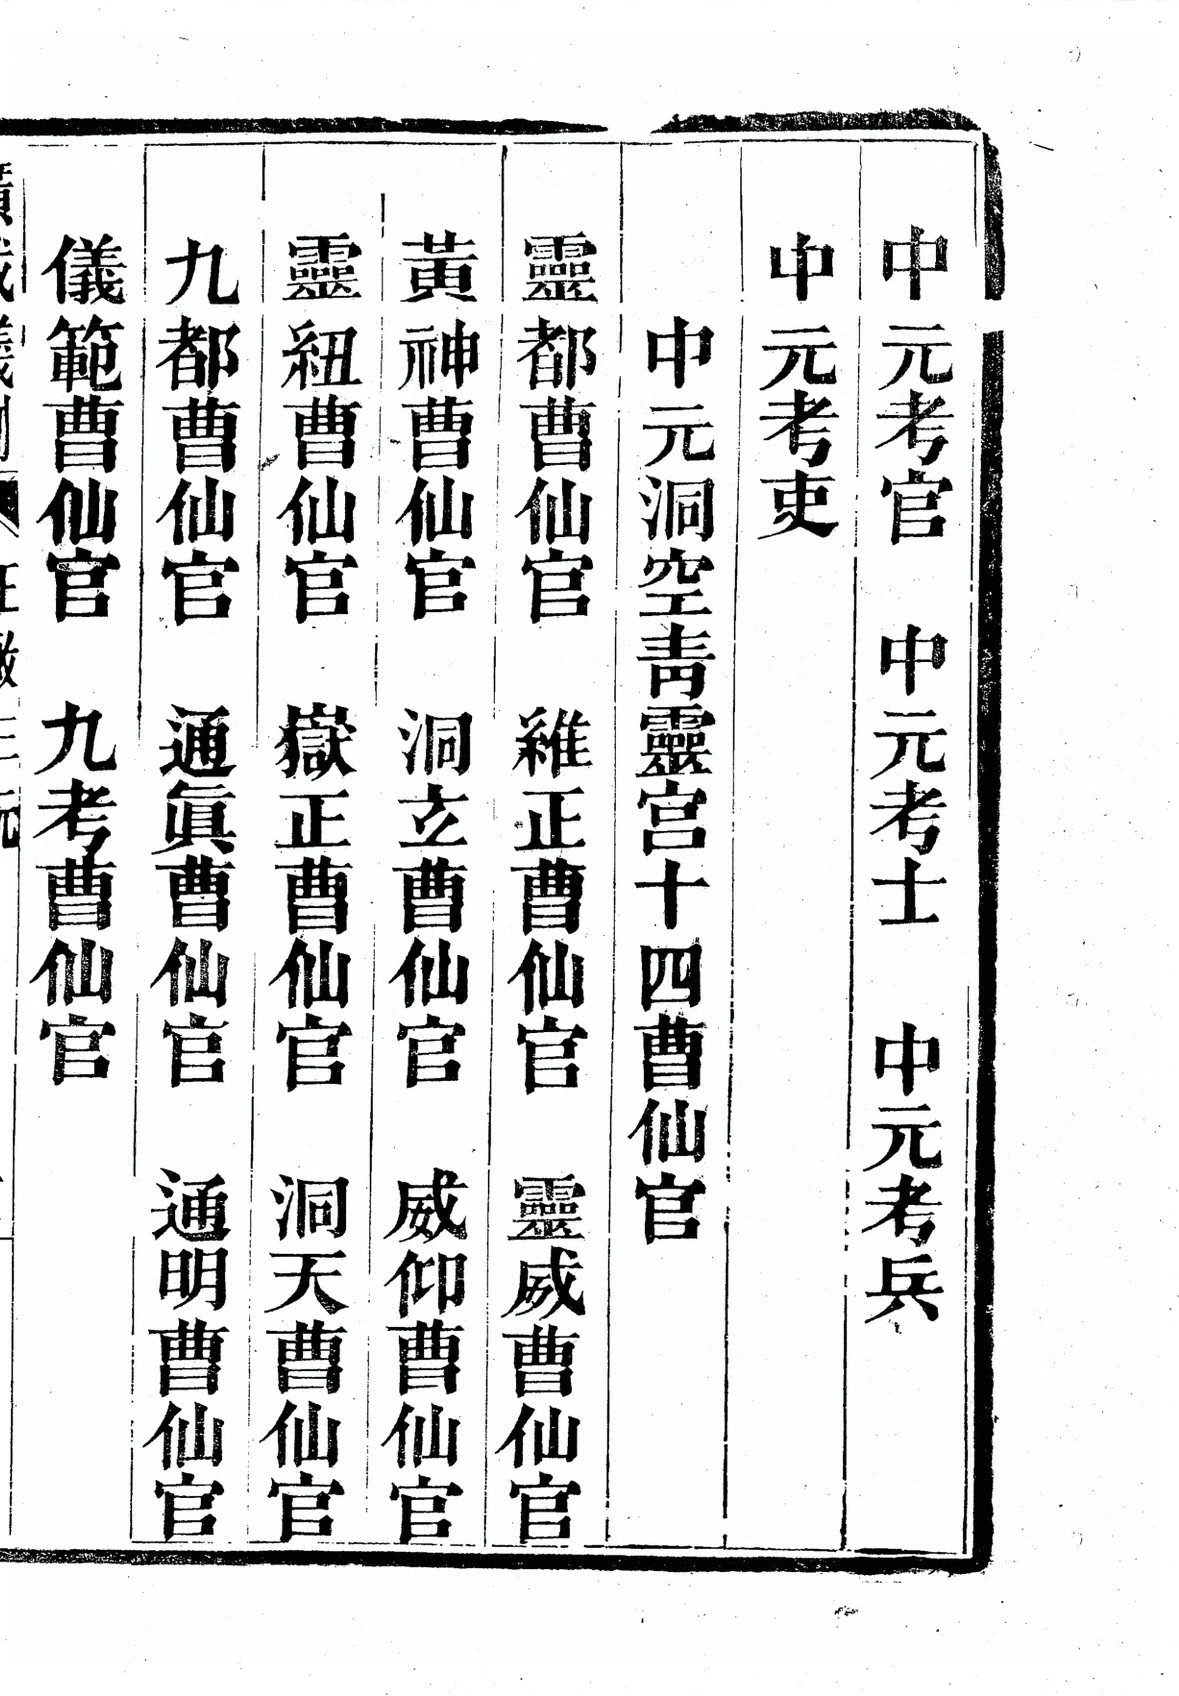 中元考官　中元考士　中元考兵
中元考吏
中元洞空青靈宮十四曹仙官
靈都曹仙官　維正曹仙官　靈威曹仙官
黃神曹仙官　洞立曹仙官　威仰曹仙官
靈紐曹仙官　嶽正曹仙官　洞天曹仙官
九都曹仙官　通眞曹仙官　通明曹仙官
儀範曹仙官　九考曹仙官